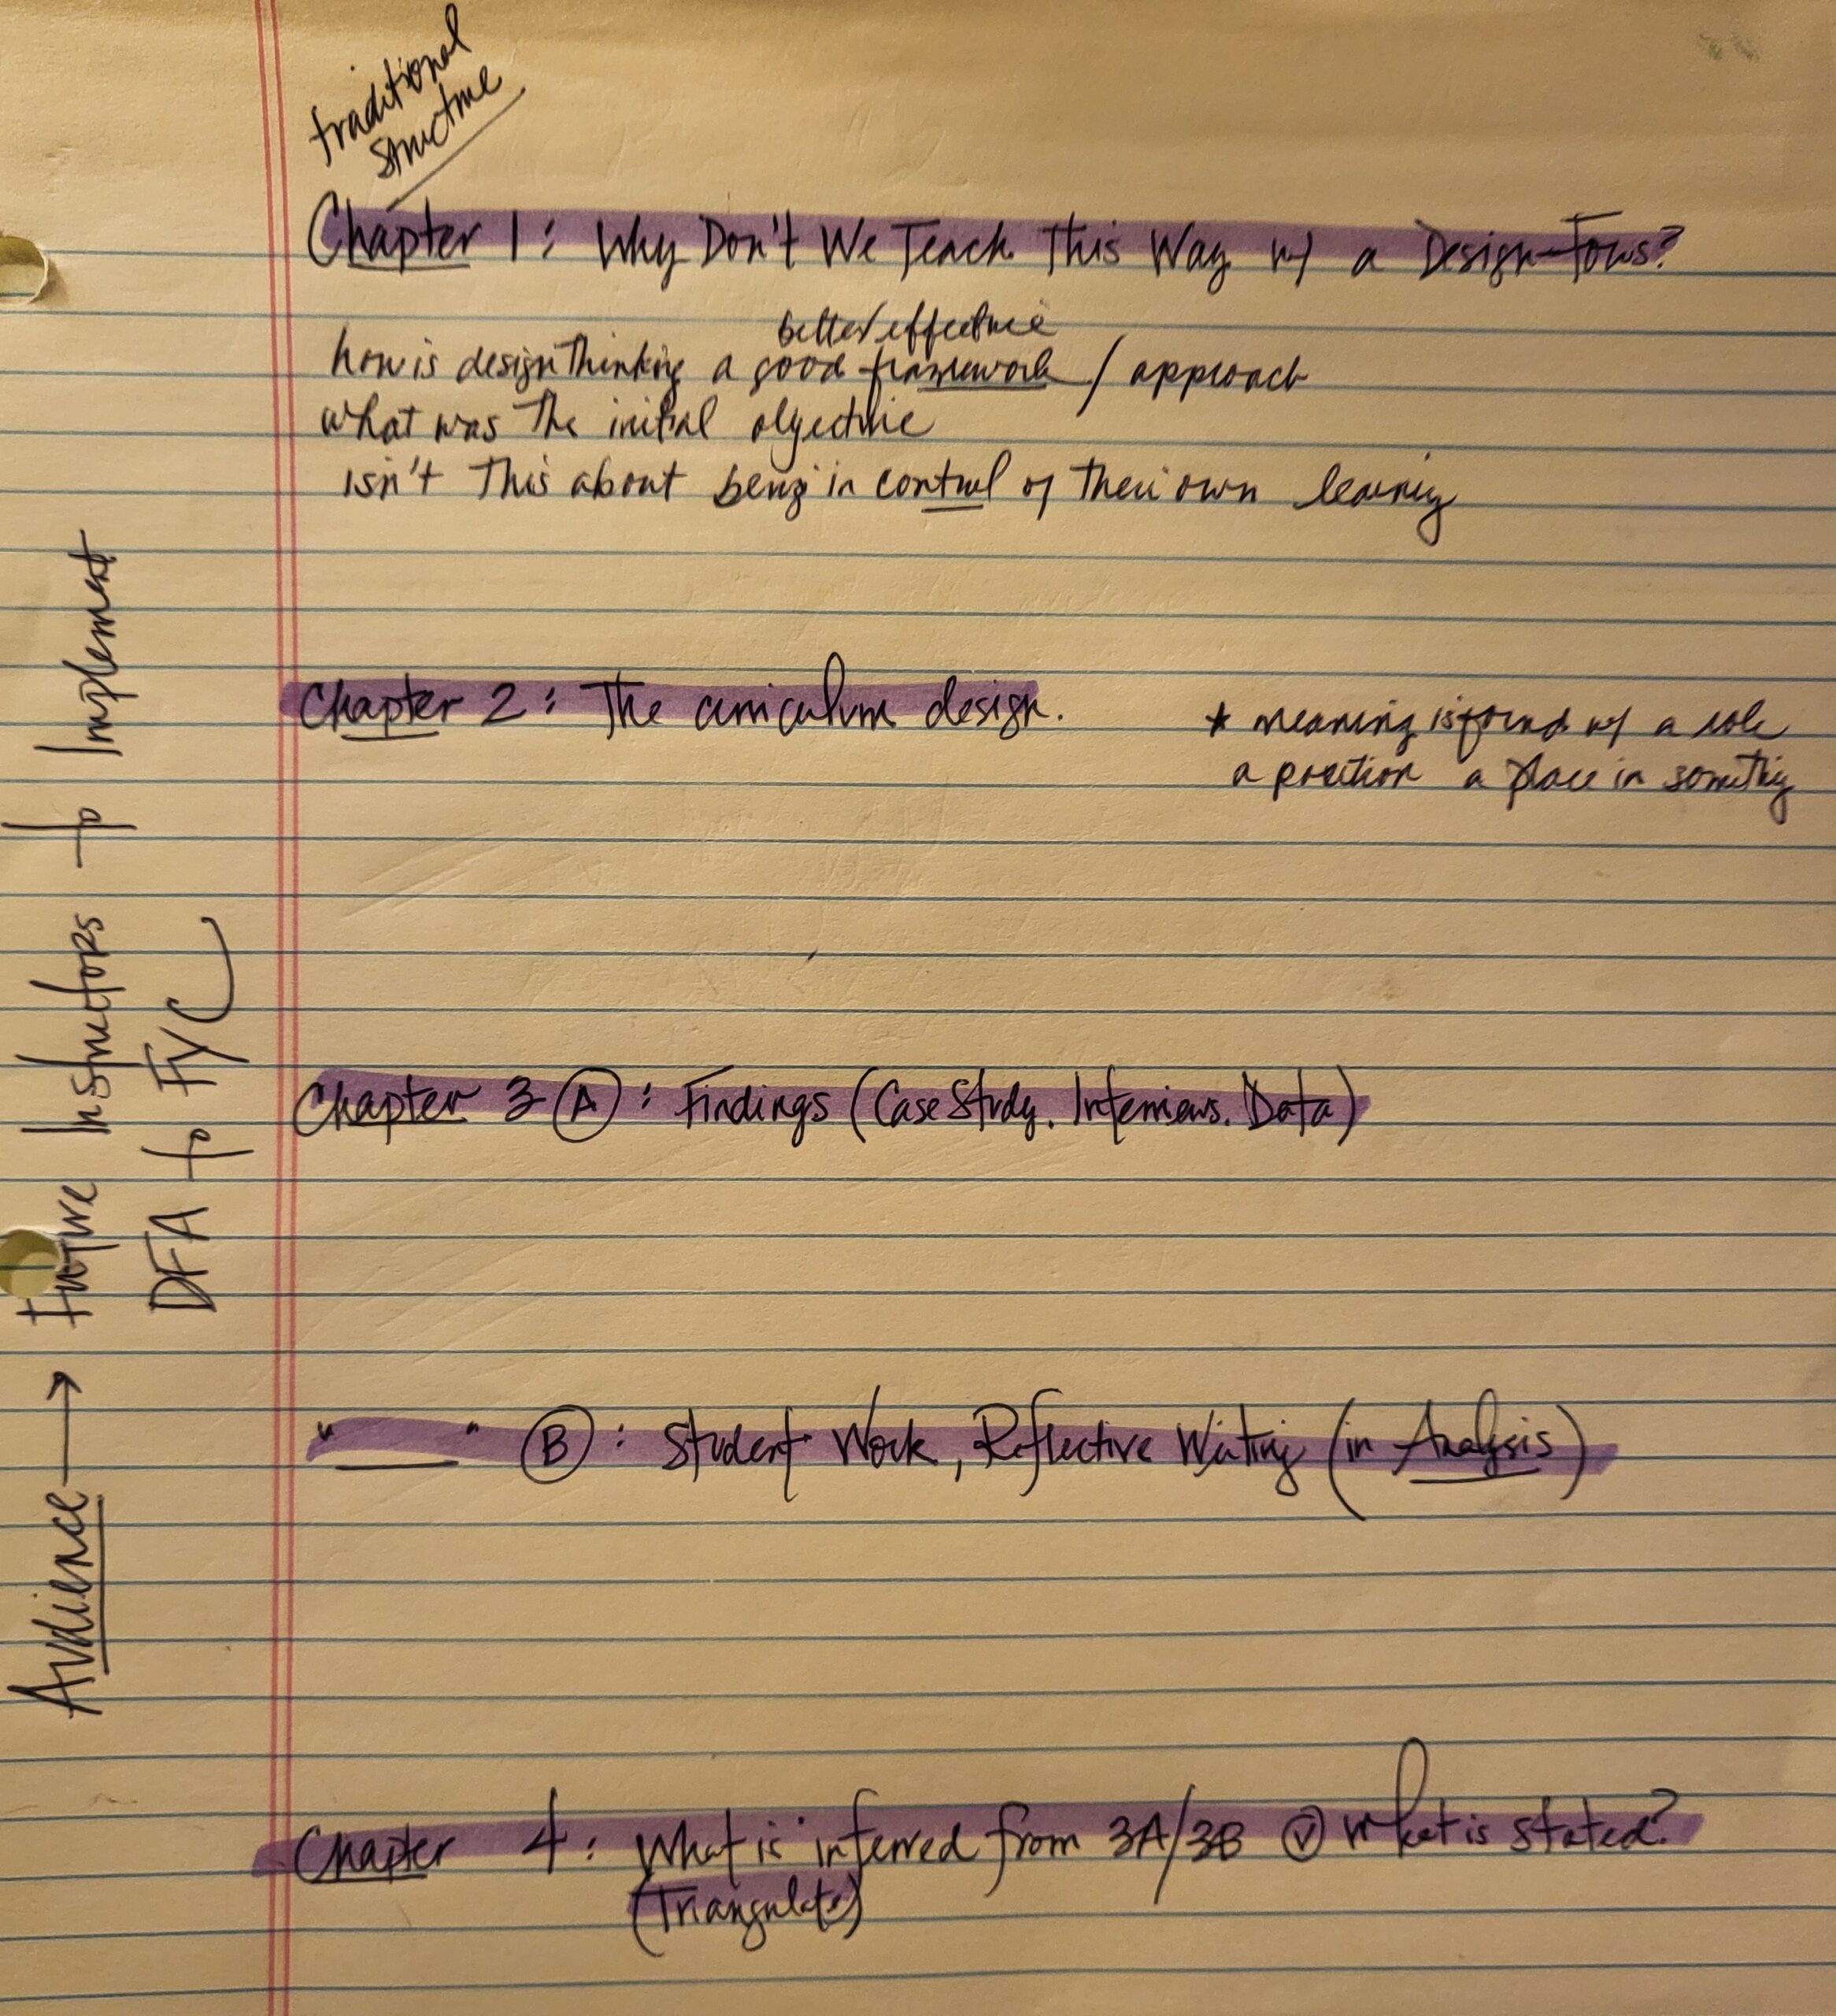 traditional
structure
Chapter 1: Why Don't We Teach This Way w/ a Design-Focus?
better/effective
how is design Thinking a good framework / approach
what was The initial objective
isn't This about being in control of Their own learning
Chapter 2: The curriculum design.
* meaning is found w/ a role
a position a place in something
Chapter 3-A: Findings (Case Study. Interviews. Data)
" " B: Student Work, Reflective Writing (in Analysis)
Chapter 4: What is inferred from 3A/3B v what is stated?
(Triangulate)
Audience → Future Instructors to Implement
DFA to FYC